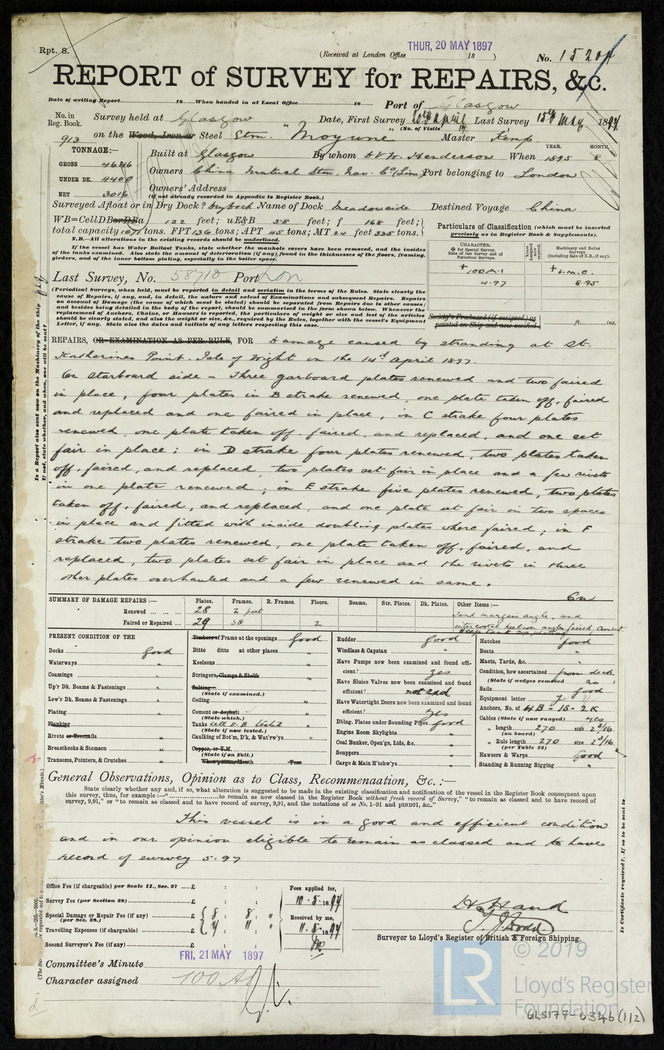 Rpt. 8.
(Received at London Office THUR, 20 MAY 1897 18 )
No. 15204
REPORT of SURVEY for REPAIRS, &c.
Date of writing Report 18 When handed in at Local Office 18 Port of Glasgow
No. in Reg. Book. Survey held at Glasgow Date, First Survey 10th April Last Survey 15th May 1897
(No. of Visits )
913 on the Wood, Iron or Steel Stm. "Moyune" Master Kemp
TONNAGE:—
GROSS 4646
UNDER DK. 4400
NET 3016
Built at Glasgow By whom D. & W. Henderson When 1895 YEAR. MONTH 8
Owners China Mutual Stm. Nav. Co. (Lim) Port belonging to London
Owners' Address
(if not already recorded in Appendix to Register Book.)
Surveyed Afloat or in Dry Dock? Dry dock Name of Dock Meadowside Destined Voyage China
WB=CellDBorDBa 122 feet; uE&B 58 feet; f 168 feet;
total capacity 1071 tons; FPT 136 tons; APT 45 tons; MT 24 feet 325 tons.
N.B.—All alterations in the existing records should be underlined.
If the vessel has Water Ballast Tanks, state whether the manhole covers have been removed, and the insides
of the tanks examined. Also state the amount of deterioration (if any) found in the thicknesses of the floors, framing,
girders, and of the inner bottom plating, especially in the boiler space.
Particulars of Classification (which must be inserted
precisely as in Register Book & Supplements).
CHARACTER,
+100A1
4.97
Machinery and Boiler Surveys
+L.M.C.
8.95
Last Survey, No. 58710 Port Lon
(Periodical Surveys, when held, must be reported in detail and seriatim in the terms of the Rules. State clearly the
cause of Repairs, if any, and, in detail, the nature and extent of Examinations and subsequent Repairs. Repairs
on account of Damage (the cause of which must be stated) should be separated from Repairs due to other causes;
and besides being detailed in the body of the report, should be summarised in the form shown below. Whenever the
replacement of Anchors, Chains, or Hawsers is reported, the particulars of weight or size and test of the articles
should be clearly stated, and also the weight or size, &c., required by the Rules, together with the vessel's Equipment
Letter, if any. State also the dates and initials of any letters respecting this case.
REPAIRS, OR EXAMINATION AS PER RULE, FOR Damage caused by stranding at St.
Katherines Point. Isle of Wight on the 14th April 1897.
On starboard side – Three garboard plates renewed and two faired
in place, four plates in B strake renewed, one plate taken off, faired
and replaced and one faired in place, in C strake four plates
renewed, one plate taken off, faired, and replaced, and one set
fair in place; in D strake four plates renewed, two plates taken
off, faired, and replaced, two plates set fair in place and a few rivets
in one plate renewed; in E strake five plates renewed, two plates
taken off, faired, and replaced, and one plate set fair in two spaces
in place and fitted with inside doubling plates where faired; in F
strake two plates renewed, one plate taken off, faired, and
replaced, two plates set fair in place and the rivets in three
other plates overhauled and a few renewed in same.
SUMMARY OF DAMAGE REPAIRS:— Plates. Frames. R. Frames. Floors. Beams. Str. Plates. Dk. Plates. Other Items:—
Renewed 28 2 part
Faired or Repaired 29 58 2
margin angle, and intercostal keelson angle faired, cement
PRESENT CONDITION OF THE
Decks good
Waterways "
Coamings "
Up'r Dk. Beams & Fastenings "
Low'r Dk. Beams & Fastenings "
Plating "
Planking
Rivets or Treenails "
Breasthooks & Stemson "
Transoms, Pointers, & Crutches "
Timbers or Frame at the openings Good
Ditto ditto at other places "
Keelsons "
Stringers, Clamps & Shelfs "
Salting
(State if examined.)
Ceiling "
Cement or Asphalt "
(State which.)
Tanks cell D.B. tested
Caulking of Bot'm, D'k, & Wat'rw'ys "
Copper, or Y.M.
(State if on Felt.)
Rudder good
Windlass & Capstan "
Have Pumps now been examined and found efficient? Yes
Have Sluice Valves now been examined and found efficient?
Have Watertight Doors now been examined and found efficient? Yes
Dblng. Plates under Sounding Pipes good
Engine Room Skylights "
Coal Bunker, Open'gs, Lids, &c. "
Scuppers "
Cargo & Main H'chw'ys "
Hatches good
Boats "
Masts, Yards, &c. "
Condition, how ascertained from deck
(State if wedges removed no )
Sails good
Equipment letter
Anchors, No. of 4B - 1S - 2K
Cables (State if now ranged) yes
" length 270 size 2 3/16
(on board)
" Rule length 270 size 2 3/16
(per Table 22)
Hawsers & Warps Good
Standing & Running Rigging "
General Observations, Opinion as to Class, Recommendation, &c.:—
State clearly whether any, and if so, what alteration is suggested to be made in the existing classification and notification of the vessel in the Register Book consequent upon
this survey, thus, for example:—" to remain as now classed in Register Book without fresh record of Survey," "to remain as classed and to have record of
survey, 9,91," or "to remain as classed and to have record of survey, 9,91, and the notations of ss No. 1-91 and ptND91, &c."
This vessel is in a good and efficient condition
and in our opinion eligible to remain as classed and to have
record of survey 5.97
Office Fee (if chargeable) per Scale II., Sec. 27 £ : :
Survey Fee (per Section 28) £ : :
Special Damage or Repair Fee (if any) (per Sec. 28.) £ 8 : 8 :
Travelling Expenses (if chargeable) £
Second Surveyor's Fee (if any) £ : :
Fees applied for, 10.5.1897
Received by me, 11.5.1897
Surveyor to Lloyd's Register of British & Foreign Shipping.
Committee's Minute FRI, 21 MAY 1897
Character assigned 100A1
© 2019
LR
Lloyd's Register
Foundation
GLS177-0346 (1/2)